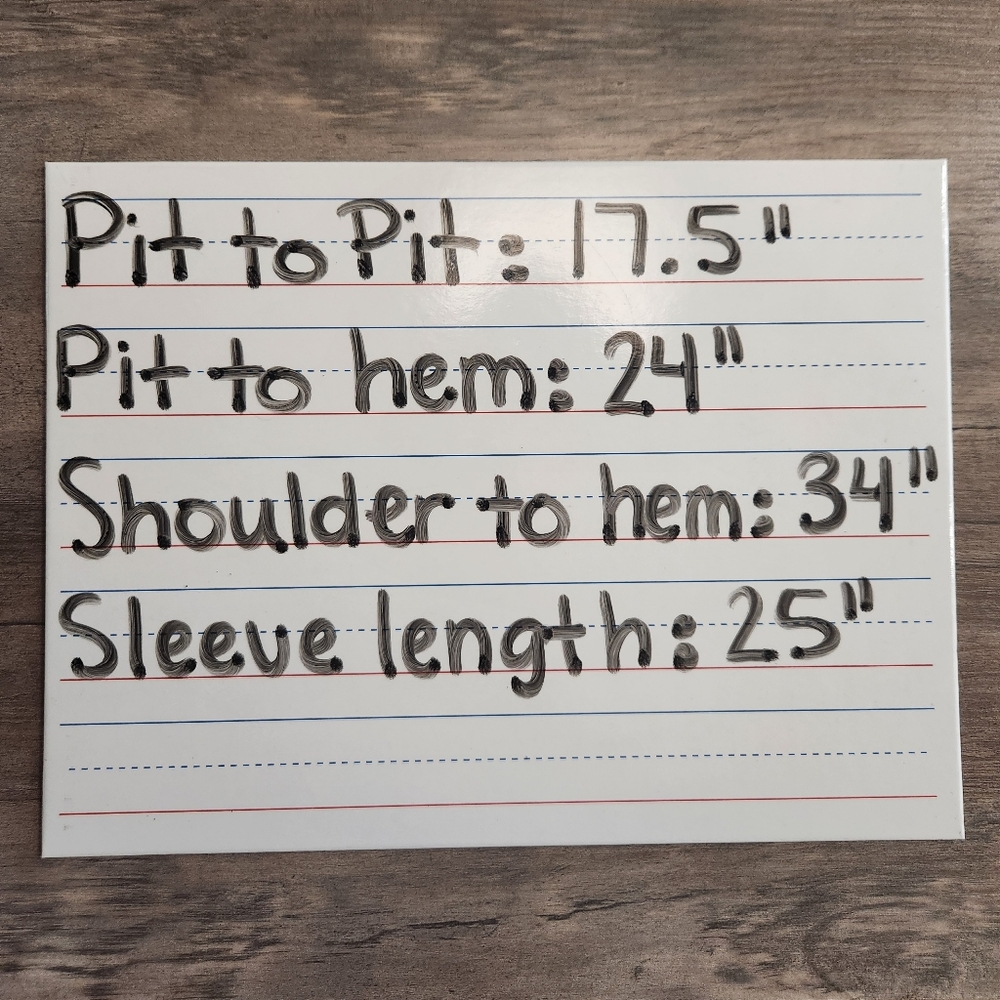 Pit to Pit: 17.5"
Pit to hem: 24"
Shoulder to hem: 34"
Sleeve length: 25"